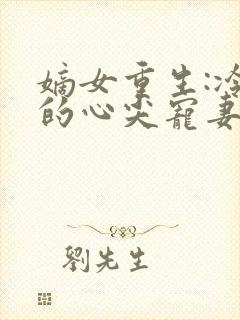 嫡女重生:冷
的心尖寵妻
劉先生